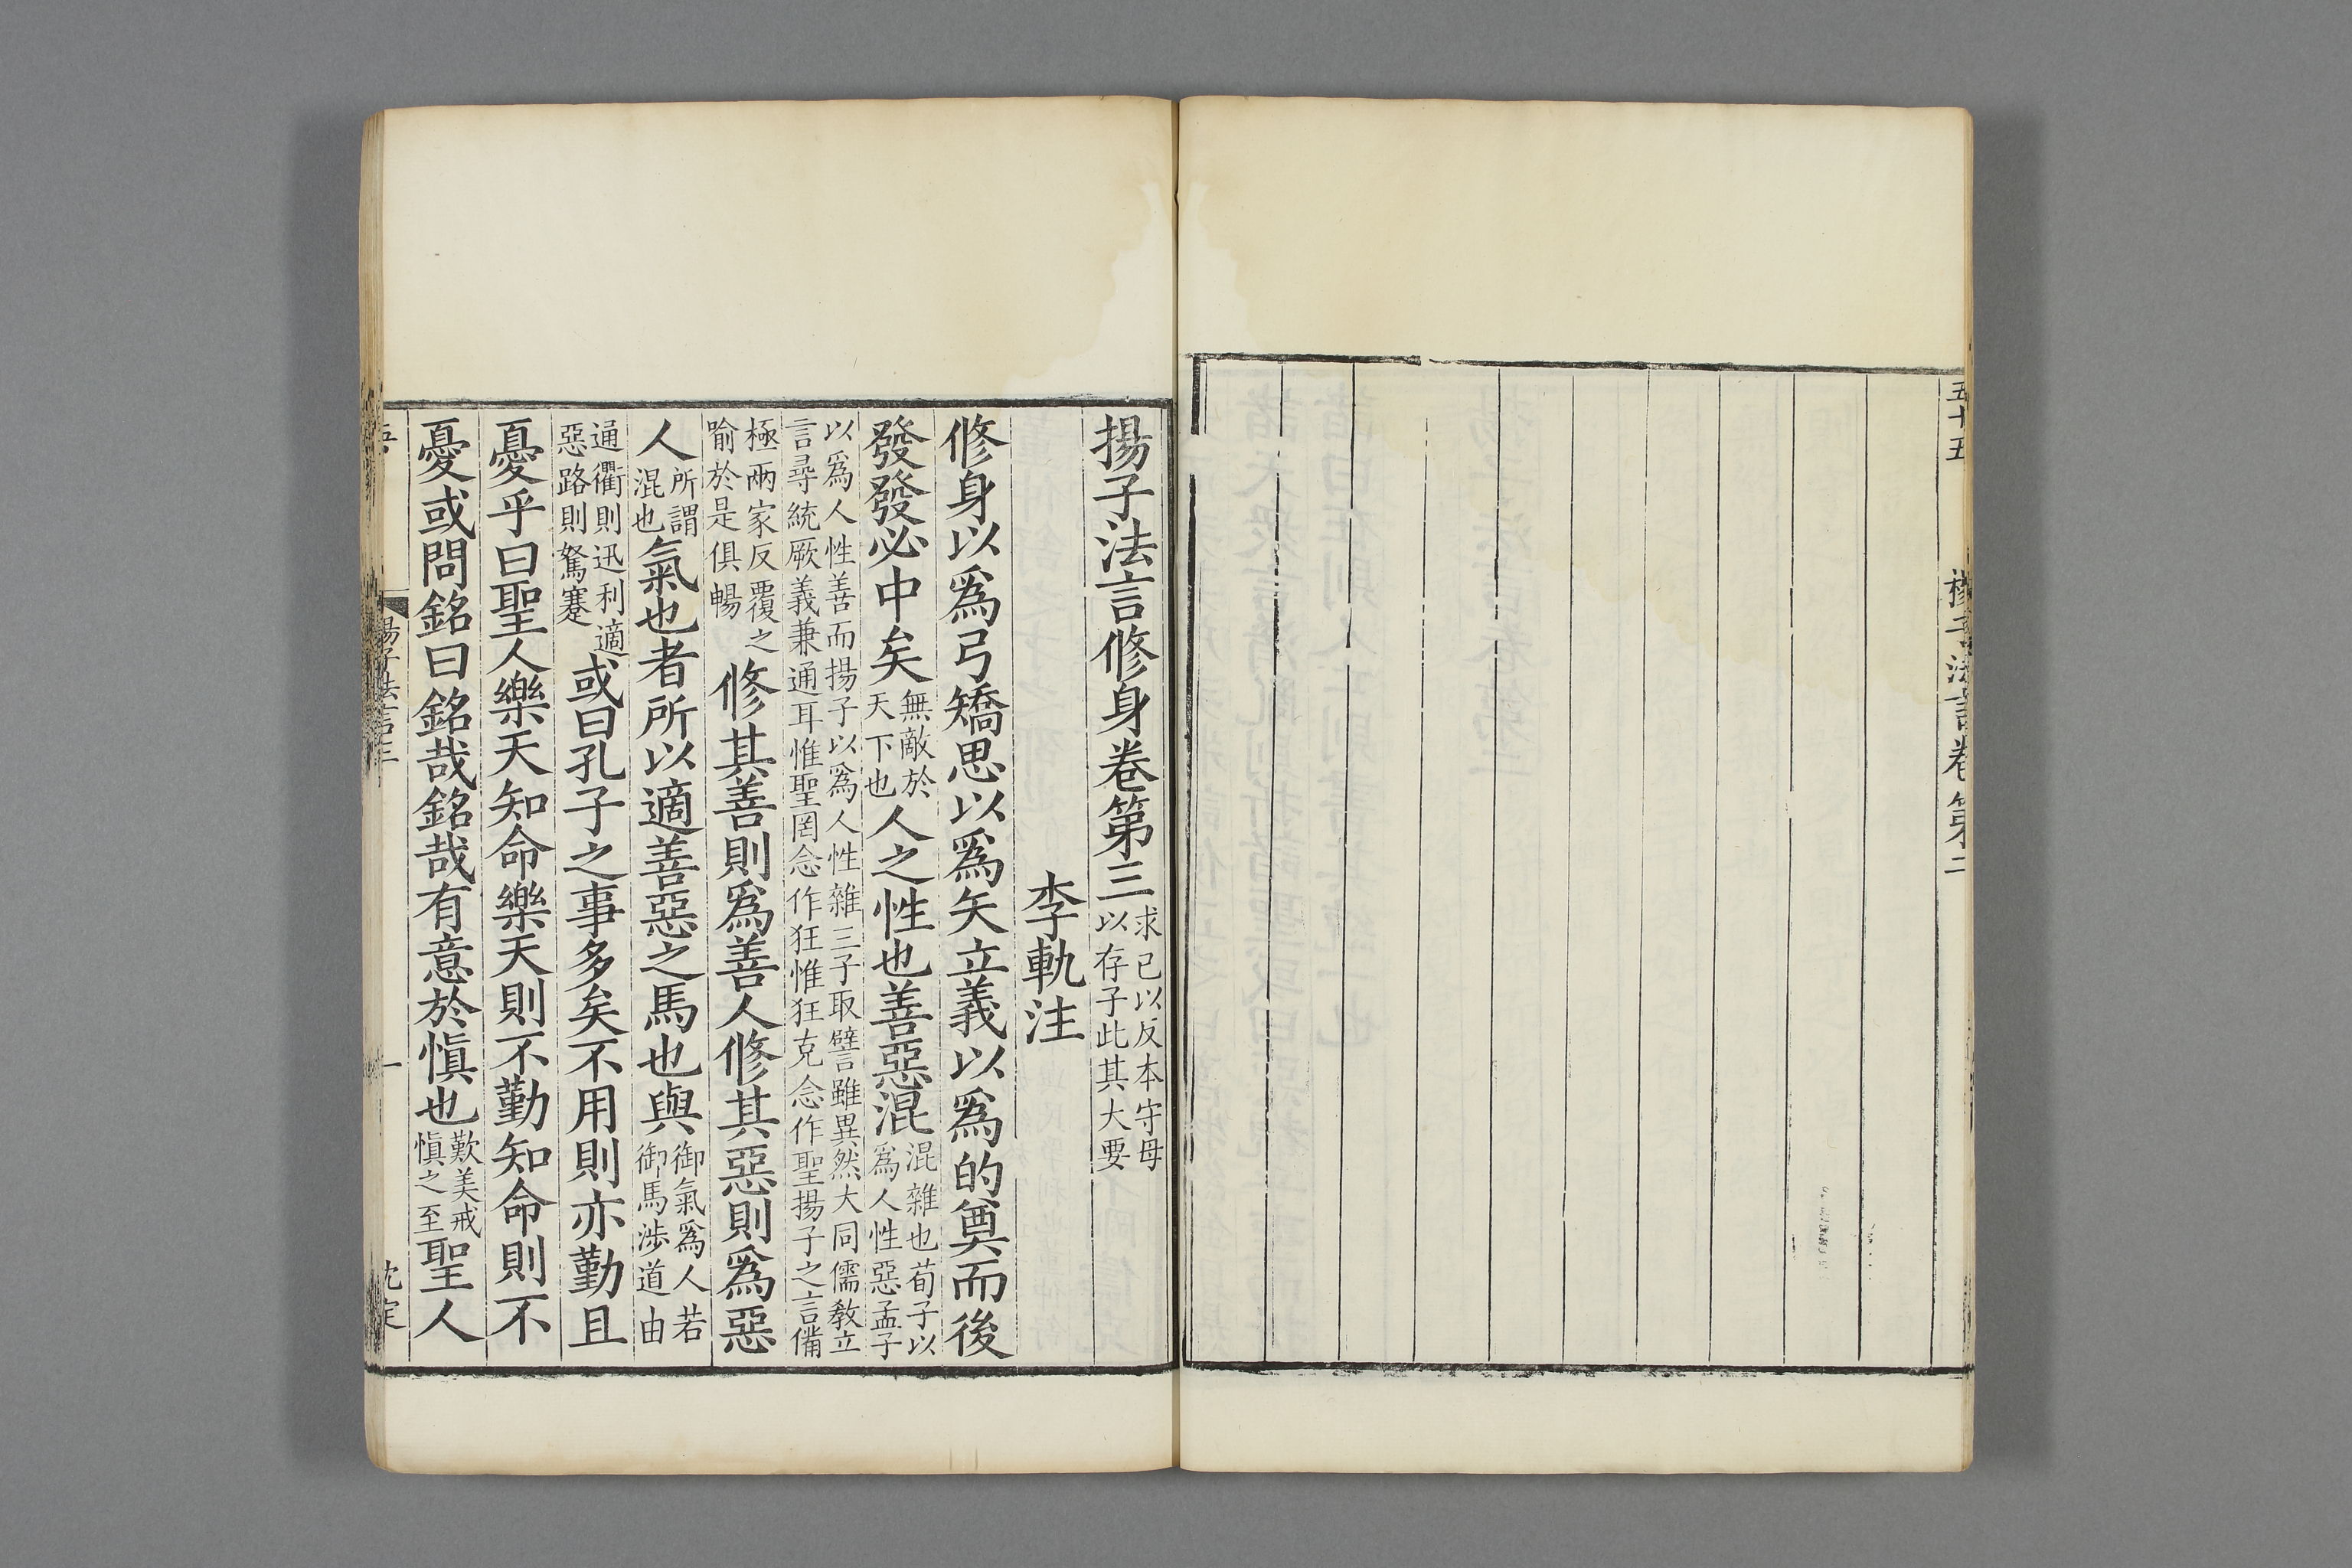 五十五 揚子法言卷第二
揚子法言修身卷第三 求已以反本守母以存子此其大要
李軌注
修身以爲弓矯思以爲矢立義以爲的奠而後
發發必中矣 無敵於天下也 人之性也善惡混 混雜也荀子以爲人性惡孟子
以爲人性善而揚子以爲人性雜三子取譬雖異然大同儒教立
言尋統厥義兼通耳惟聖罔念作狂惟狂克念作聖揚子之言備
極兩家反覆之喻於是俱暢 修其善則爲善人修其惡則爲惡
人 所謂混也 氣也者所以適善惡之馬也與 御氣爲人若御馬涉道由
通衢則迅利適惡路則駑蹇 或曰孔子之事多矣不用則亦勤且
憂乎曰聖人樂天知命樂天則不勤知命則不
憂或問銘曰銘哉銘哉有意於愼也 歎美戒愼之至 聖人
揚子法言三 一